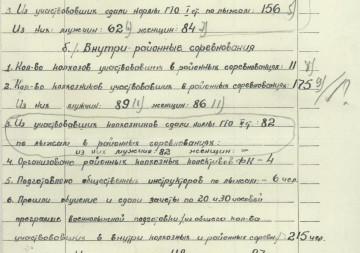 3. Из участвовавших сдали нормы ГТО I ст. по лыжам: 156
Из них мужчин: 62 женщин: 84
б./ Внутри-районные соревнования
1. Кол-во колхозов участвовавш. в районных соревнованиях: 11
2. Кол-во колхозников участвовавш. в районных соревнованиях: 175
Из них мужчин: 89 женщин: 86
3. Из участвовавших колхозников сдали нормы ГТО I ст.: 82
по лыжам в районных соревнованиях:
из них мужчин 82 женщин: —
4. Организовано районных колхозных коллективов ФК - 4
5. Подготовлено общественных инструкторов по лыжам - 6 чел.
6. Прошли обучение и сдали зачеты по 20 и 30 часовой
программе военнолыжной подготовки из общего кол-ва
участвовавших в внутри колхозных и районных соревн. 215 чел.
118 97